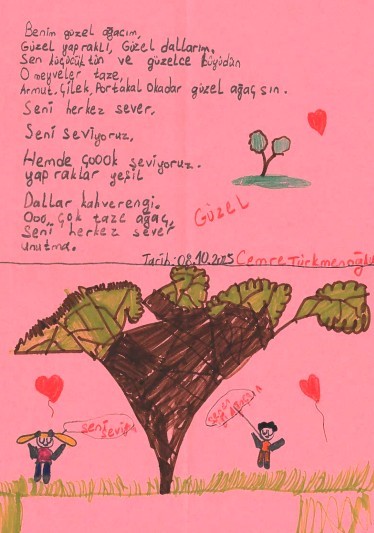 Benim güzel ağacım,
Güzel yapraklı, Güzel dallarım.
Sen küçücüktün ve güzelce büyüdün
O meyveler taze,
Armut, Çilek, Portakal Okadar güzel ağaçsın.
Seni herkez sever,
Seni seviyoruz,
Hemde Çoook seviyoruz.
yapraklar yeşil
Dallar kahverengi.
Ooo, çok taze ağaç,
Seni herkez sever
unutma.
Güzel
Tarih:08.10.2025 Cemre Türkmenoğlu
seni